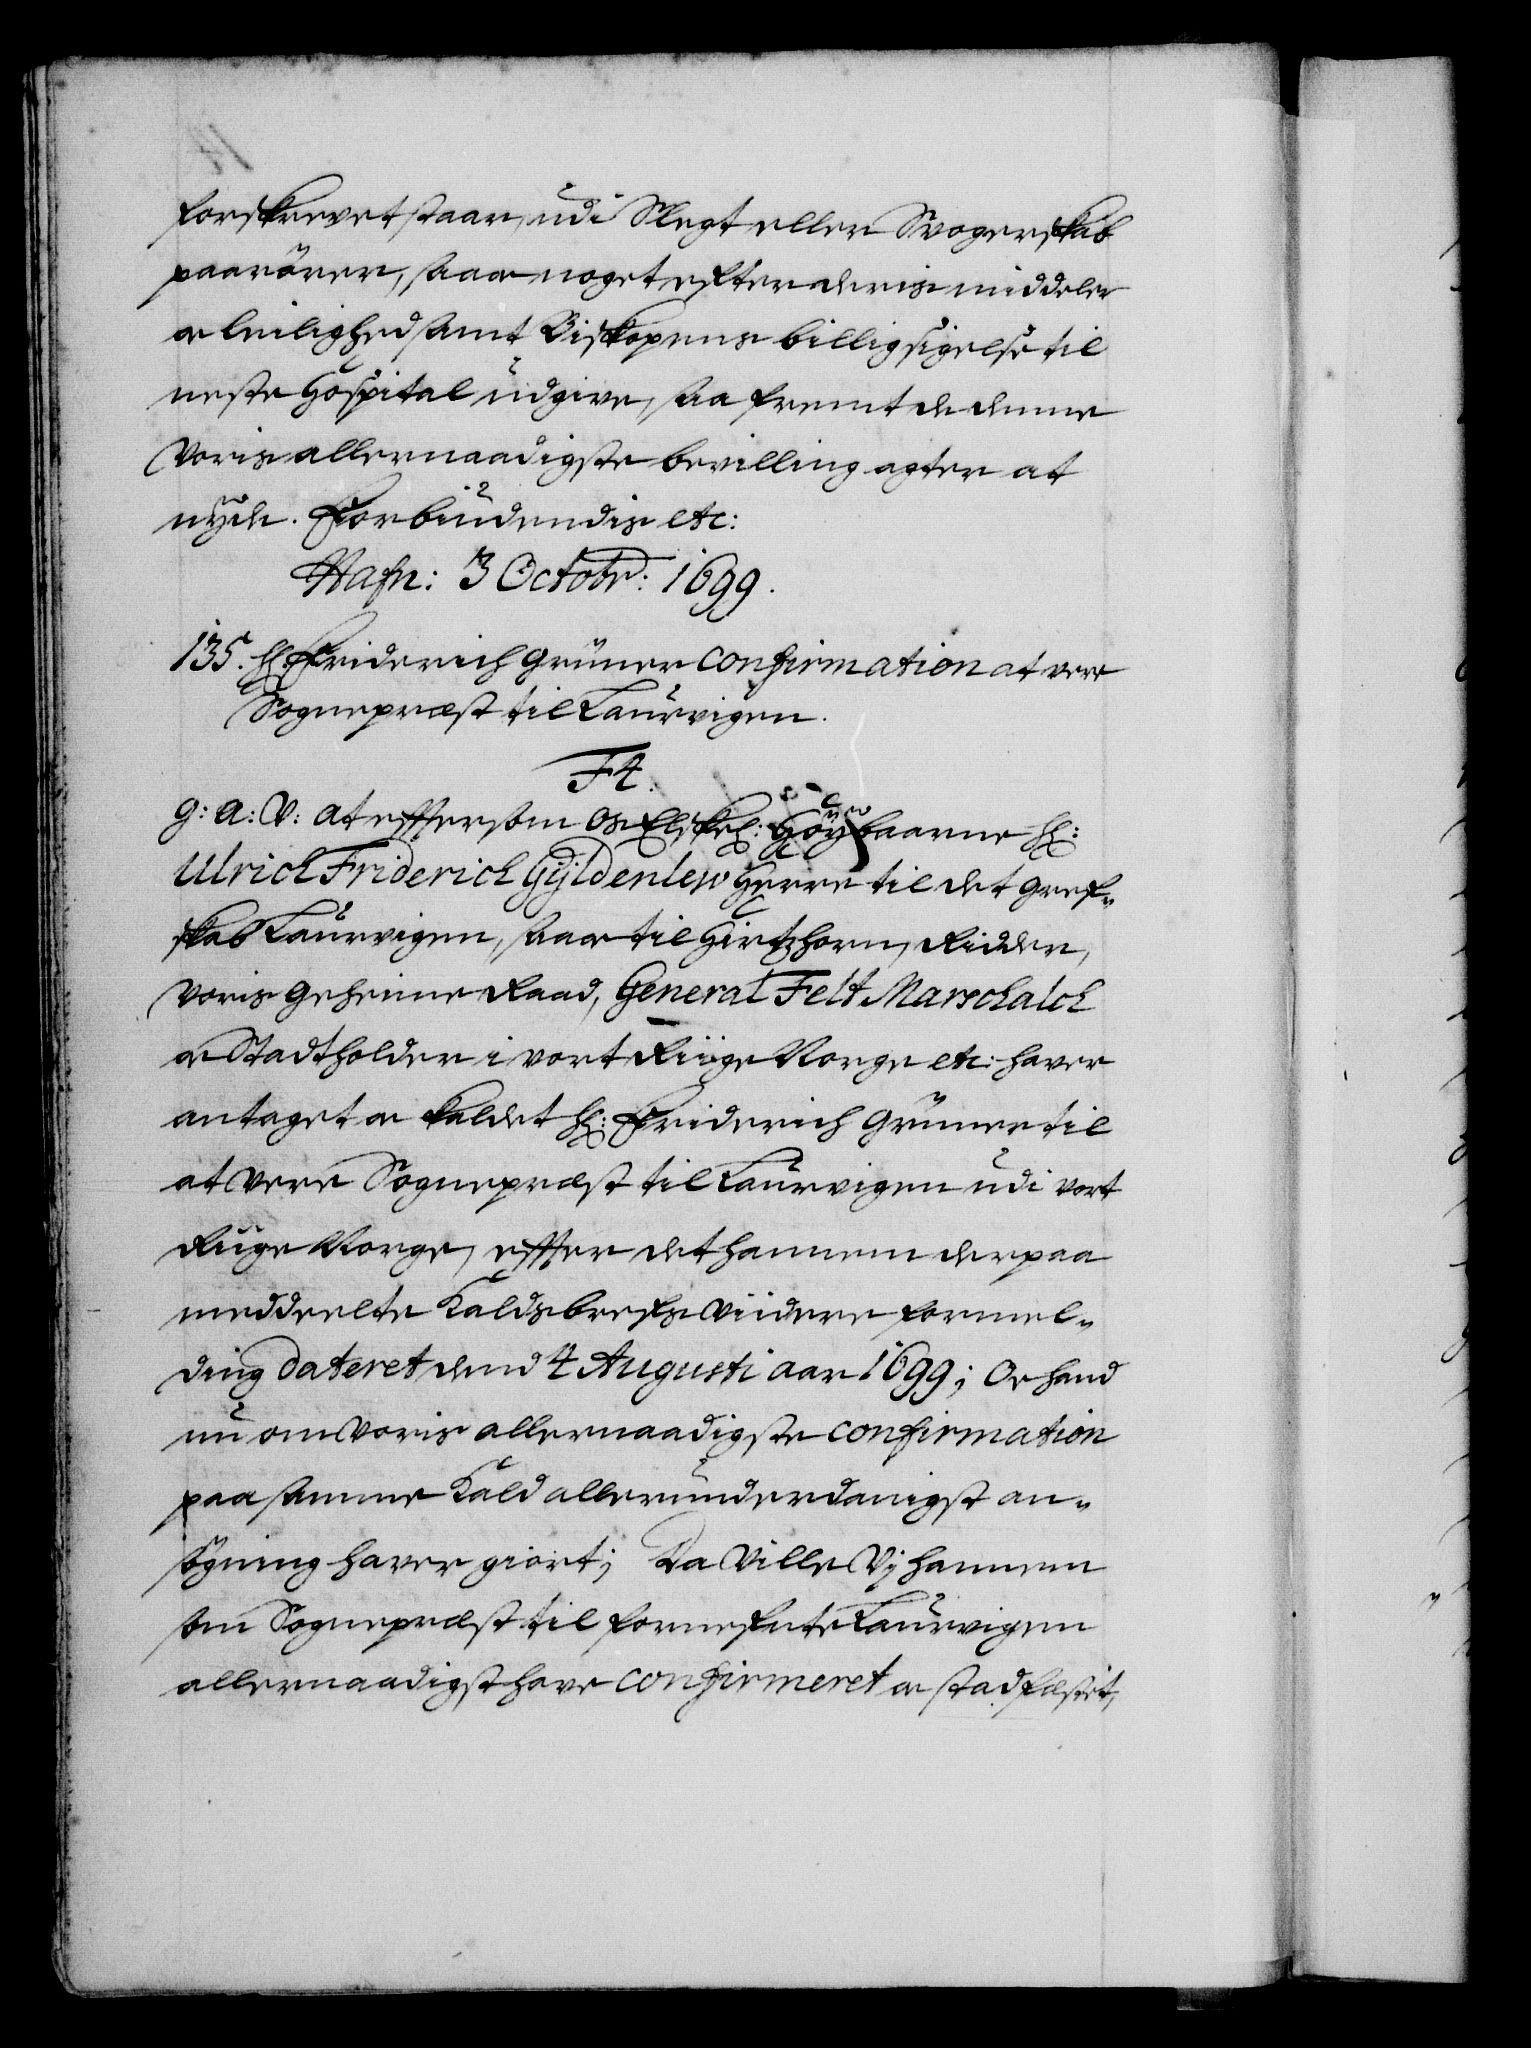 forskrevet staar, udi Slegt eller Svogerskab
paarörer, saa og noget efter deris middeler
og leilighed samt Biskopens billigsigelse til
neste Hospital udgive, saa fremt de denne
Voris allernaadigste bevilling agter at
nyde. Forbiudendis etc:
Hafn: 3 Octobr: 1699.
135. Hr: Friderich Grüner Confirmation at vere
Sognepræst til Laurvigen.
F4.
G: A: V: at eftersom Os Elskel: Höybaarne Hr:
Ulrich Friderich Gyldenlew Herre til det Gref-
skab Laurvigen, saa og til Hirtzhorn, Ridder,
Voris Geheime Raad, General Felt Marschalch
og Stadtholder i vort Riige Norge etc: haver
antaget og kaldet Hr: Friderich Grüner til
at vere Sognepræst til Laurvigen udi vort
Riige Norge, efter det hannem derpaa
meddeelte Kaldsbrefs viidere formel-
ding dateret dend 4 Augusti aar 1699; Og hand
nu om Voris allernaadigste confirmation
paa samme Kald allerunderdanigst an-
sögning haver giort; Da Ville Vj hannem
som Sognepræst til formeldte Laurvigen
allernaadigst have confirmeret og stadfæstet,